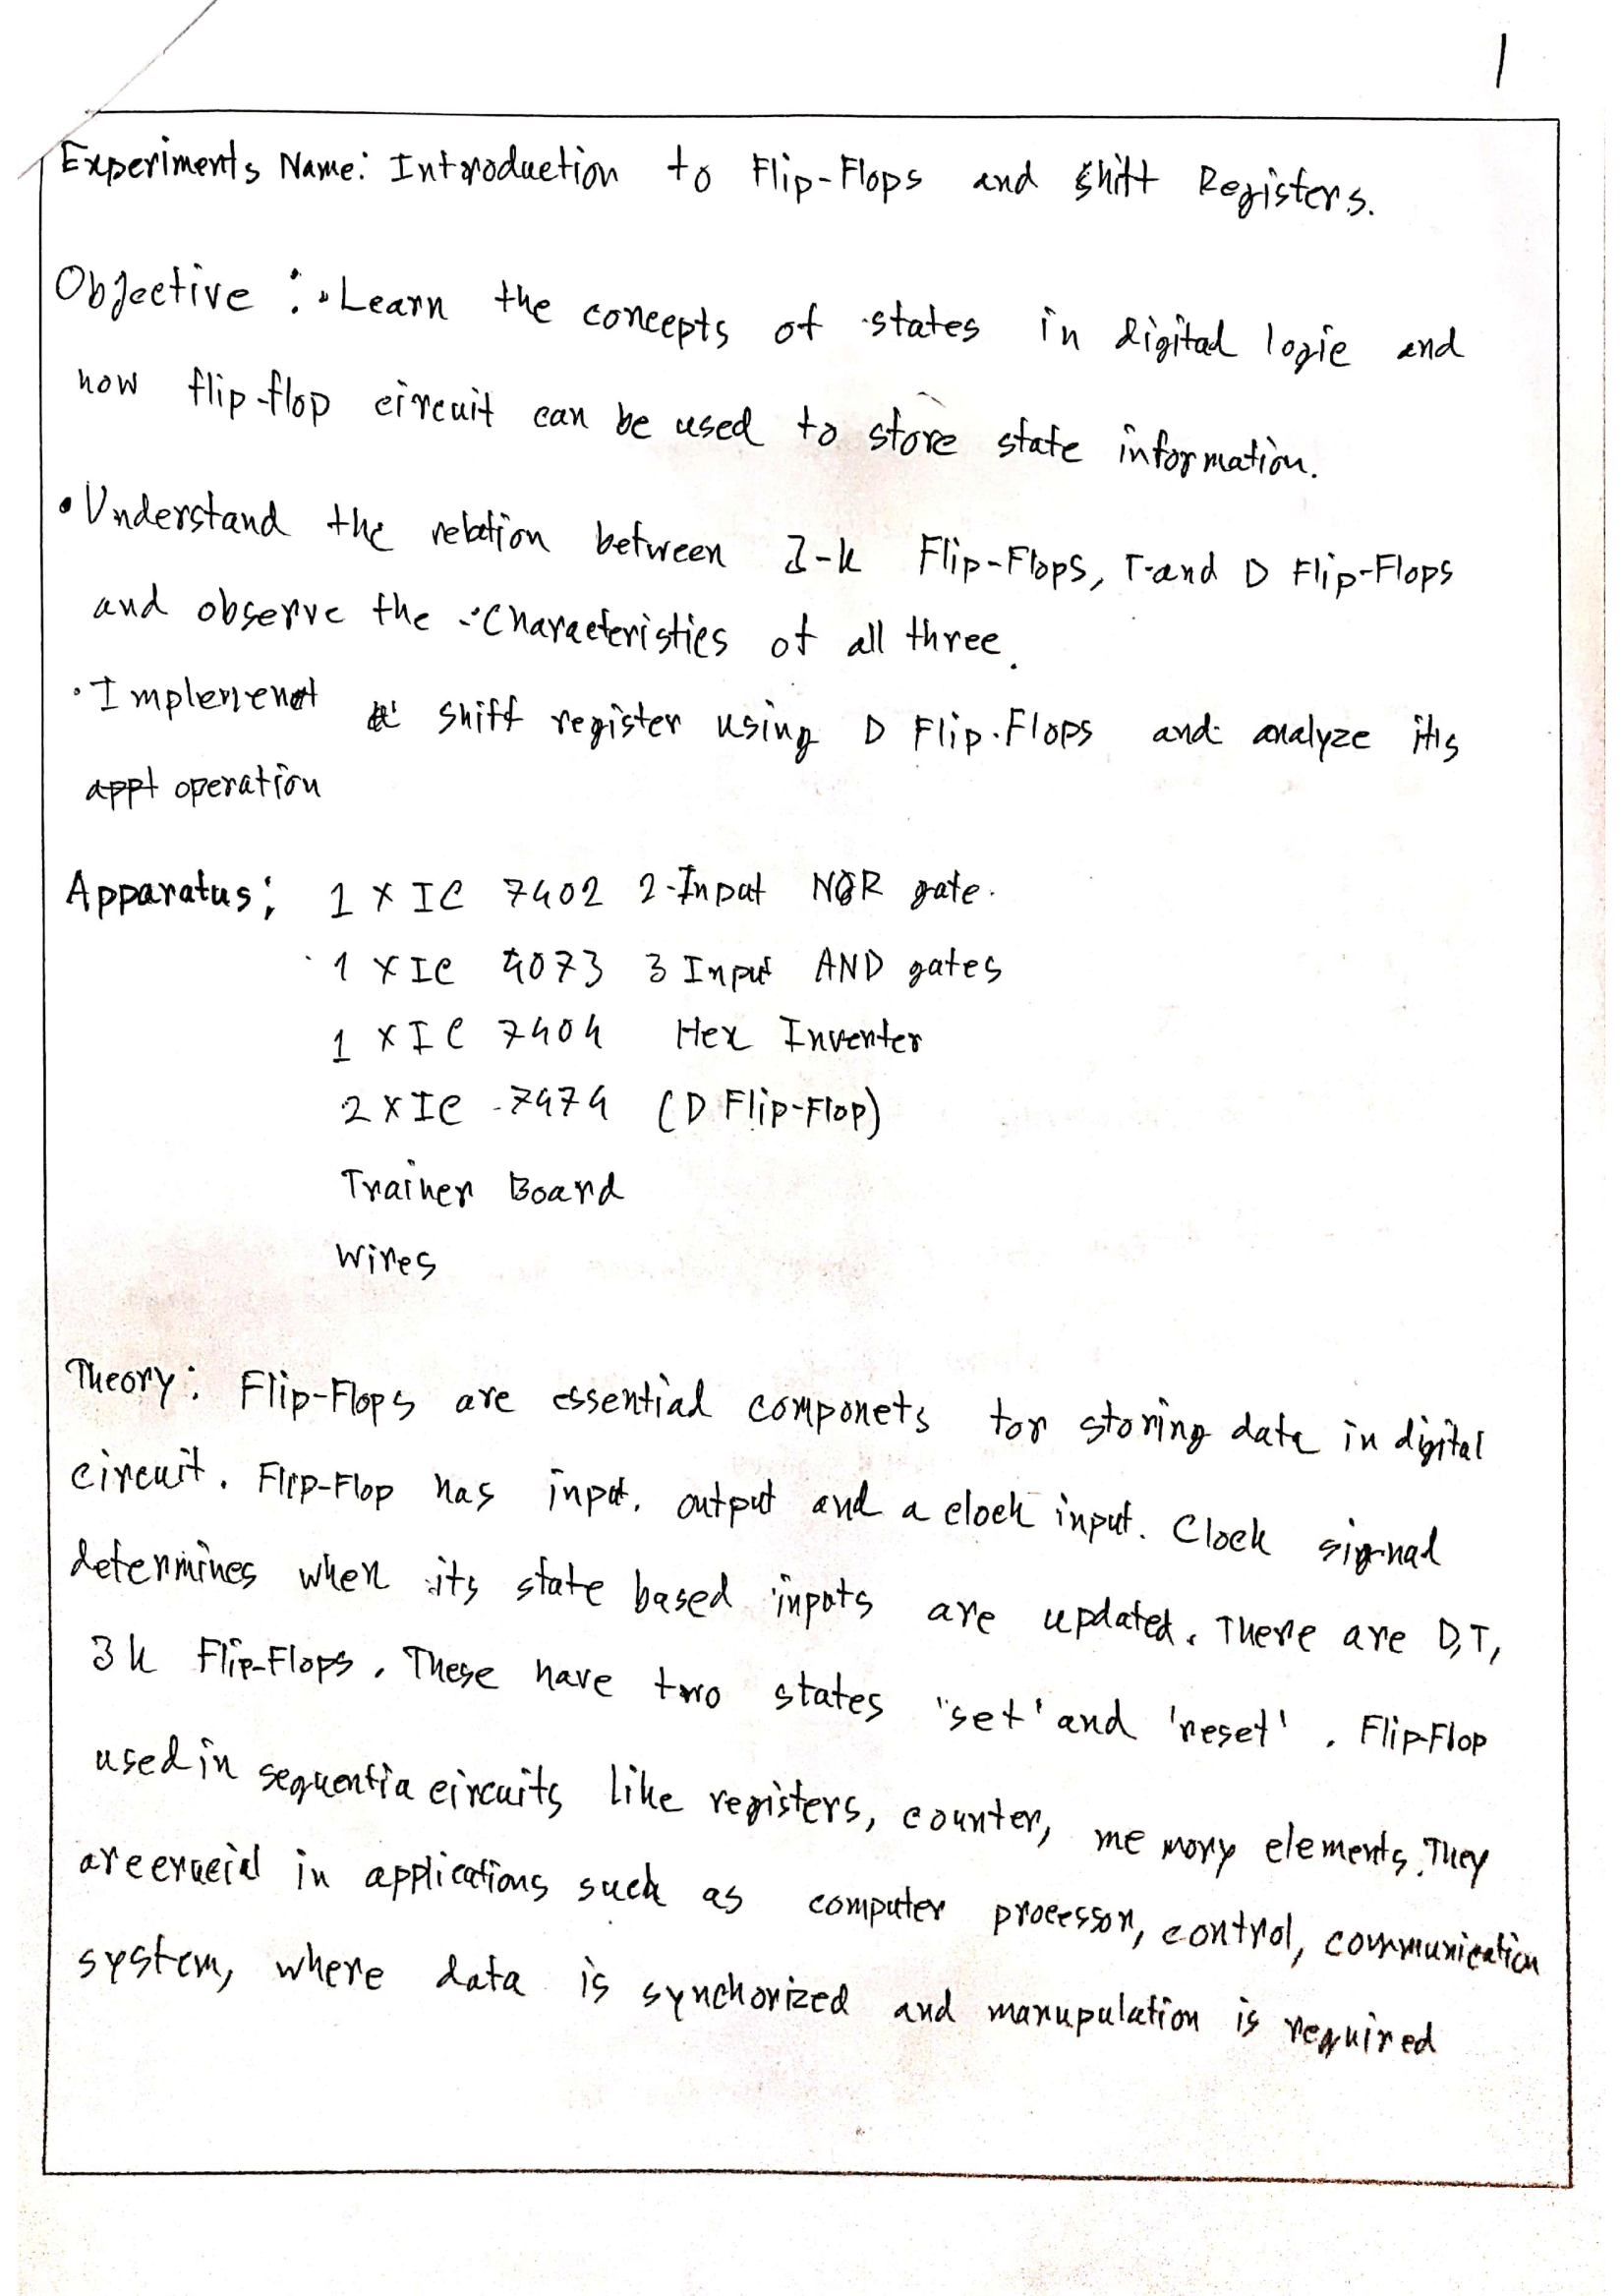 1
Experiments Name: Introduction to Flip-Flops and Shift Registers.
Objective : • Learn the concepts of states in digital logic and
how flip-flop circuit can be used to store state information.
• Understand the relation between J-K Flip-Flops, T and D Flip-Flops
and observe the Characteristics of all three.
• Implement shift register using D Flip-Flops and analyze its
operation
Apparatus: 1 X IC 7402 2-Input NOR gate.
1 X IC 4073 3 Input AND gates
1 X IC 7404 Hex Inventer
2 X IC 7474 (D Flip-Flop)
Trainer Board
Wires
Theory: Flip-Flops are essential componets for storing data in digital
circuit. Flip-Flop has input, output and a clock input. Clock signal
determines when its state based inputs are updated. There are D,T,
JK Flip-Flops. These have two states "set' and 'reset'. Flip-Flop
used in sequentia circuits like registers, counter, memory elements. They
are crucial in applications such as computer processor, control, communication
system, where data is synchorized and manupulation is required